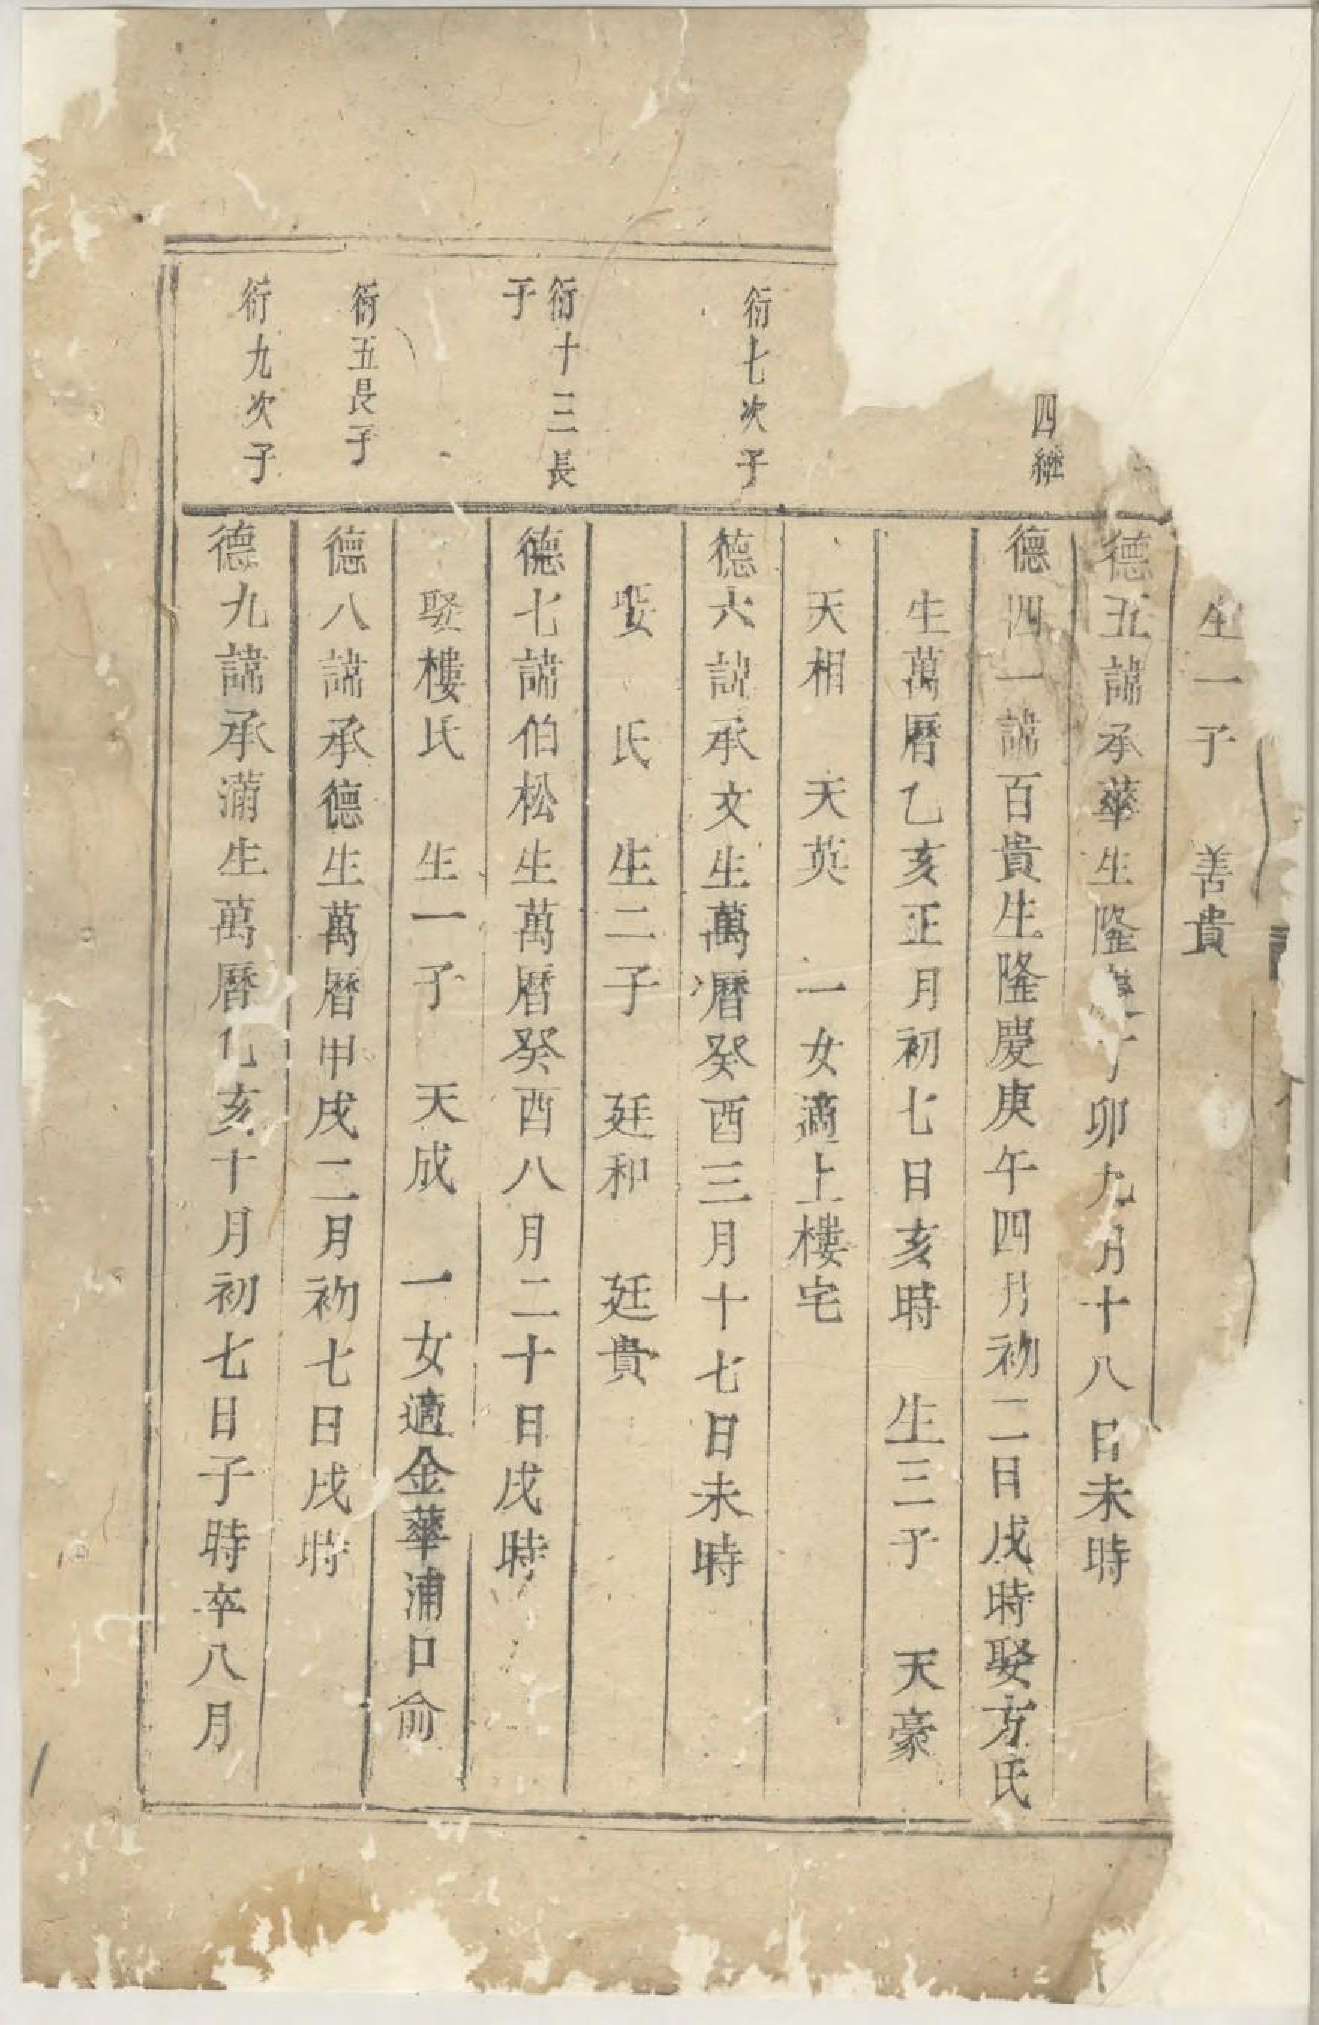 生一子　善貴
德五諱承華生隆　卯九月十八日未時
四繼
德四一諱百貴生隆慶庚午四月初二日戌時娶方氏
生萬曆乙亥正月初七日亥時　生三子　天豪
天相　天英　一女適上樓宅
衍七次子
德六諱承文生萬曆癸酉三月十七日未時
娶　氏　生二子　廷和　廷貴
衍十三長
子
德七諱伯松生萬曆癸酉八月二十日戌時
娶樓氏　生一子　天成　一女適金華浦口俞
衍五長子
德八諱承德生萬曆甲戌二月初七日戌時
衍九次子
德九諱承滿生萬曆乙亥十月初七日子時卒八月